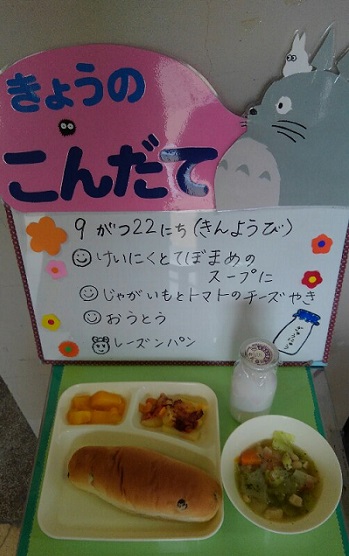 きょうの
こんだて
9がつ22にち(きんようび)
けいにくとてぼまめの
スープに
じゃがいもとトマトのチーズやき
おうとう
レーズンパン